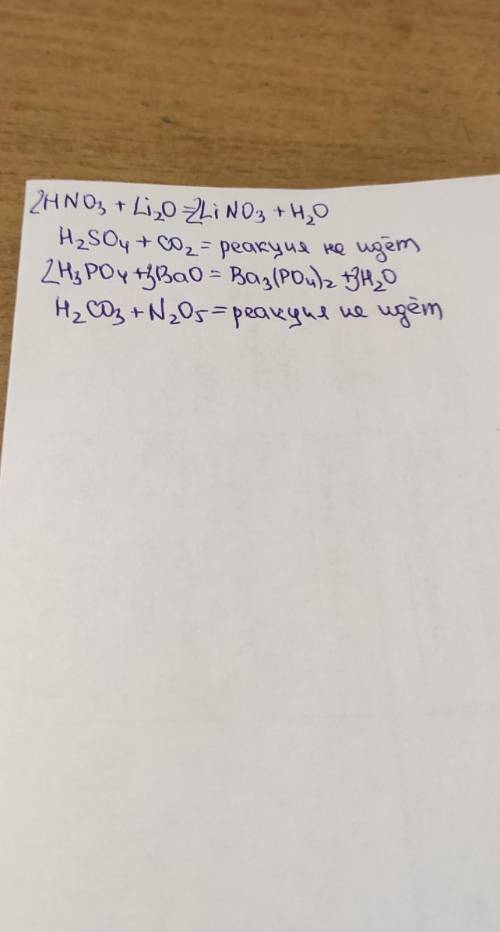 2HNO₃ + Li₂O = 2LiNO₃ + H₂O
H₂SO₄ + CO₂ = реакция не идёт
2H₃PO₄ + 3BaO = Ba₃(PO₄)₂ + 3H₂O
H₂CO₃ + N₂O₅ = реакция не идёт